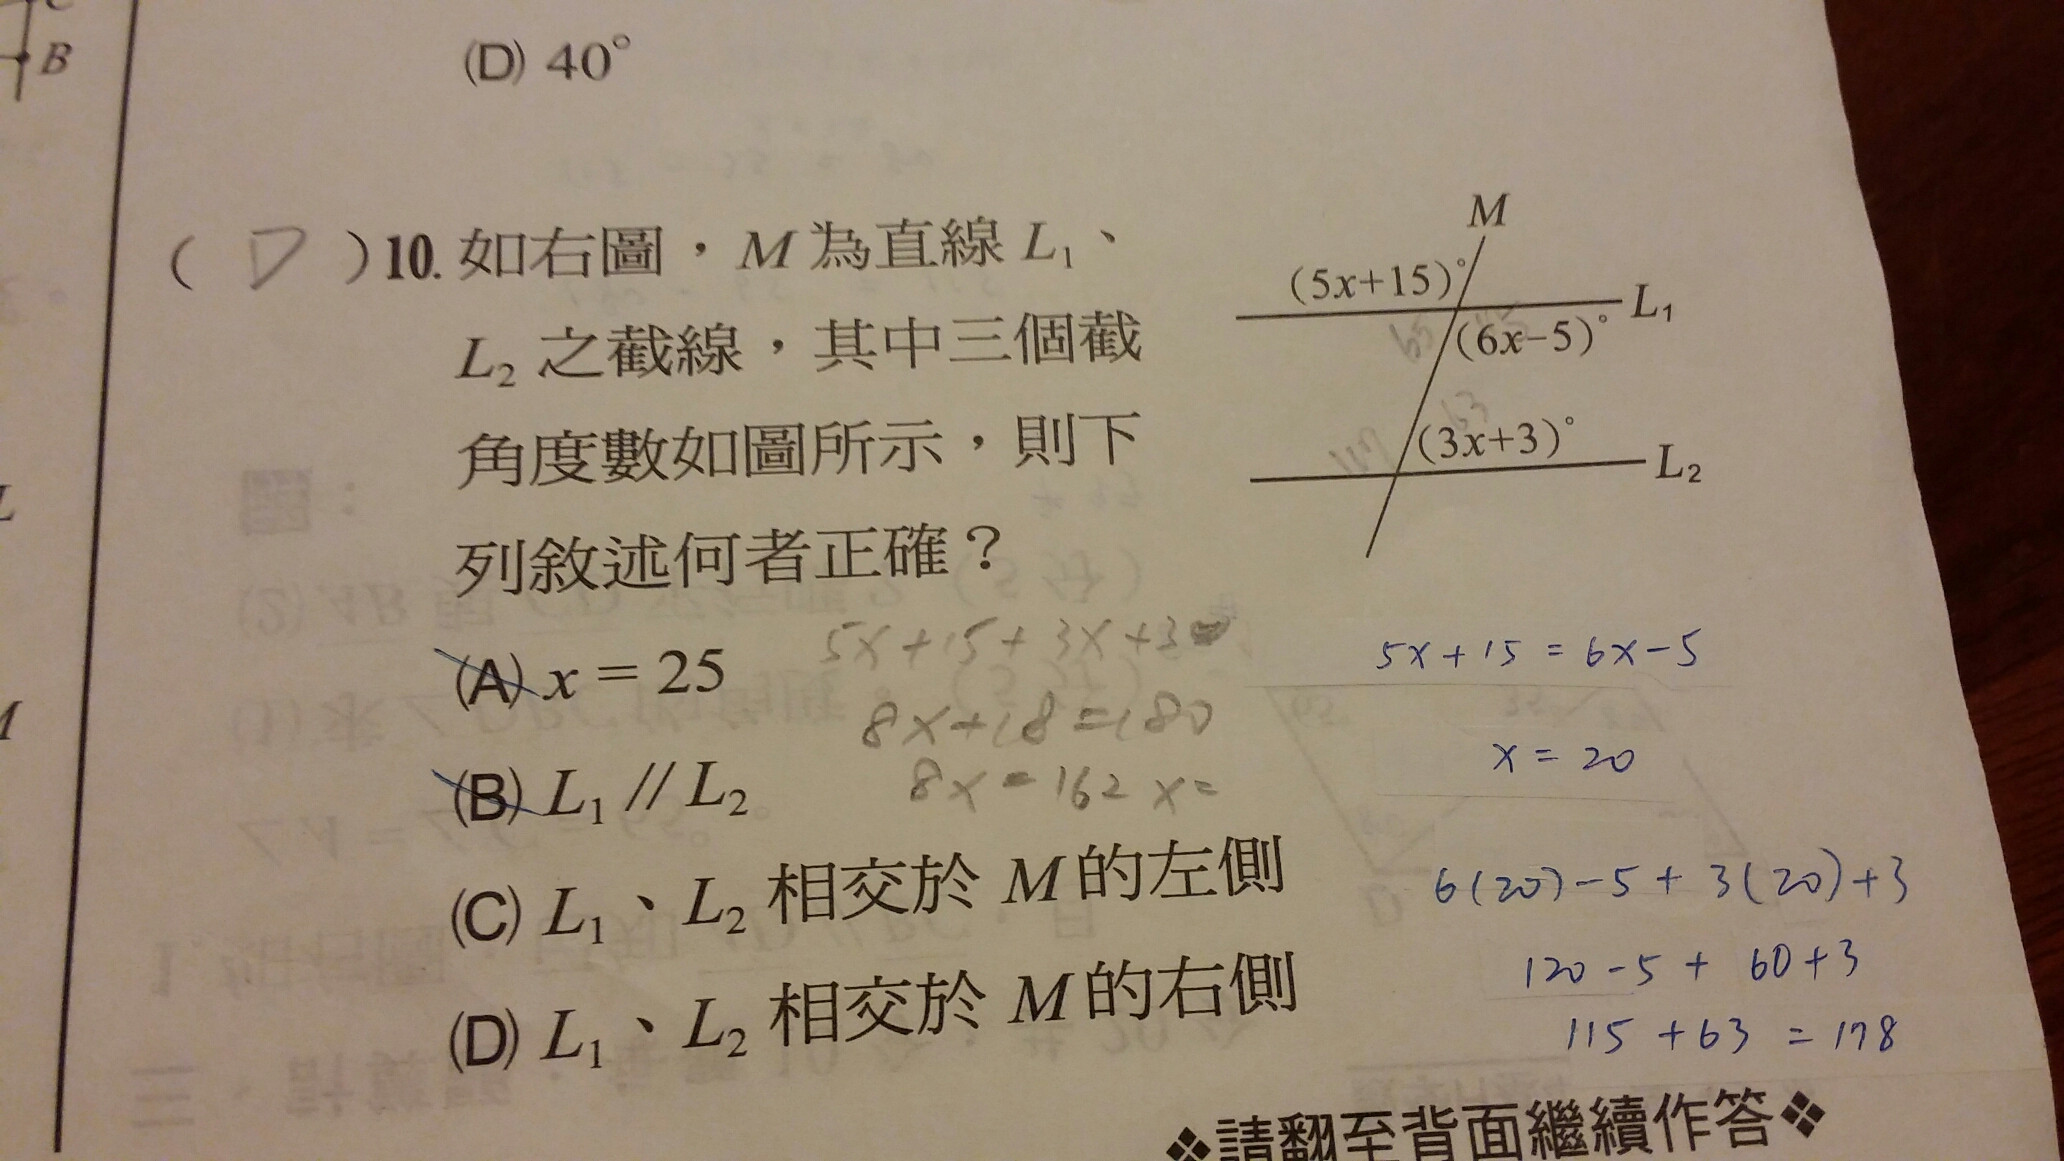 B
(D) 40°
( D )10. 如右圖，M為直線 L₁、
L₂ 之截線，其中三個截
角度數如圖所示，則下
列敘述何者正確？
M
(5x+15)°
L₁
(6x−5)°
65
63
117
(3x+3)°
L₂
(A) x = 25
(B) L₁ // L₂
(C) L₁、L₂ 相交於 M的左側
(D) L₁、L₂ 相交於 M的右側
5x+15+3x+3
8x+18=180
8x=162 x=
5x+15=6x-5
x=20
6(20)-5+3(20)+3
120-5+60+3
115+63=178
❖請翻至背面繼續作答❖